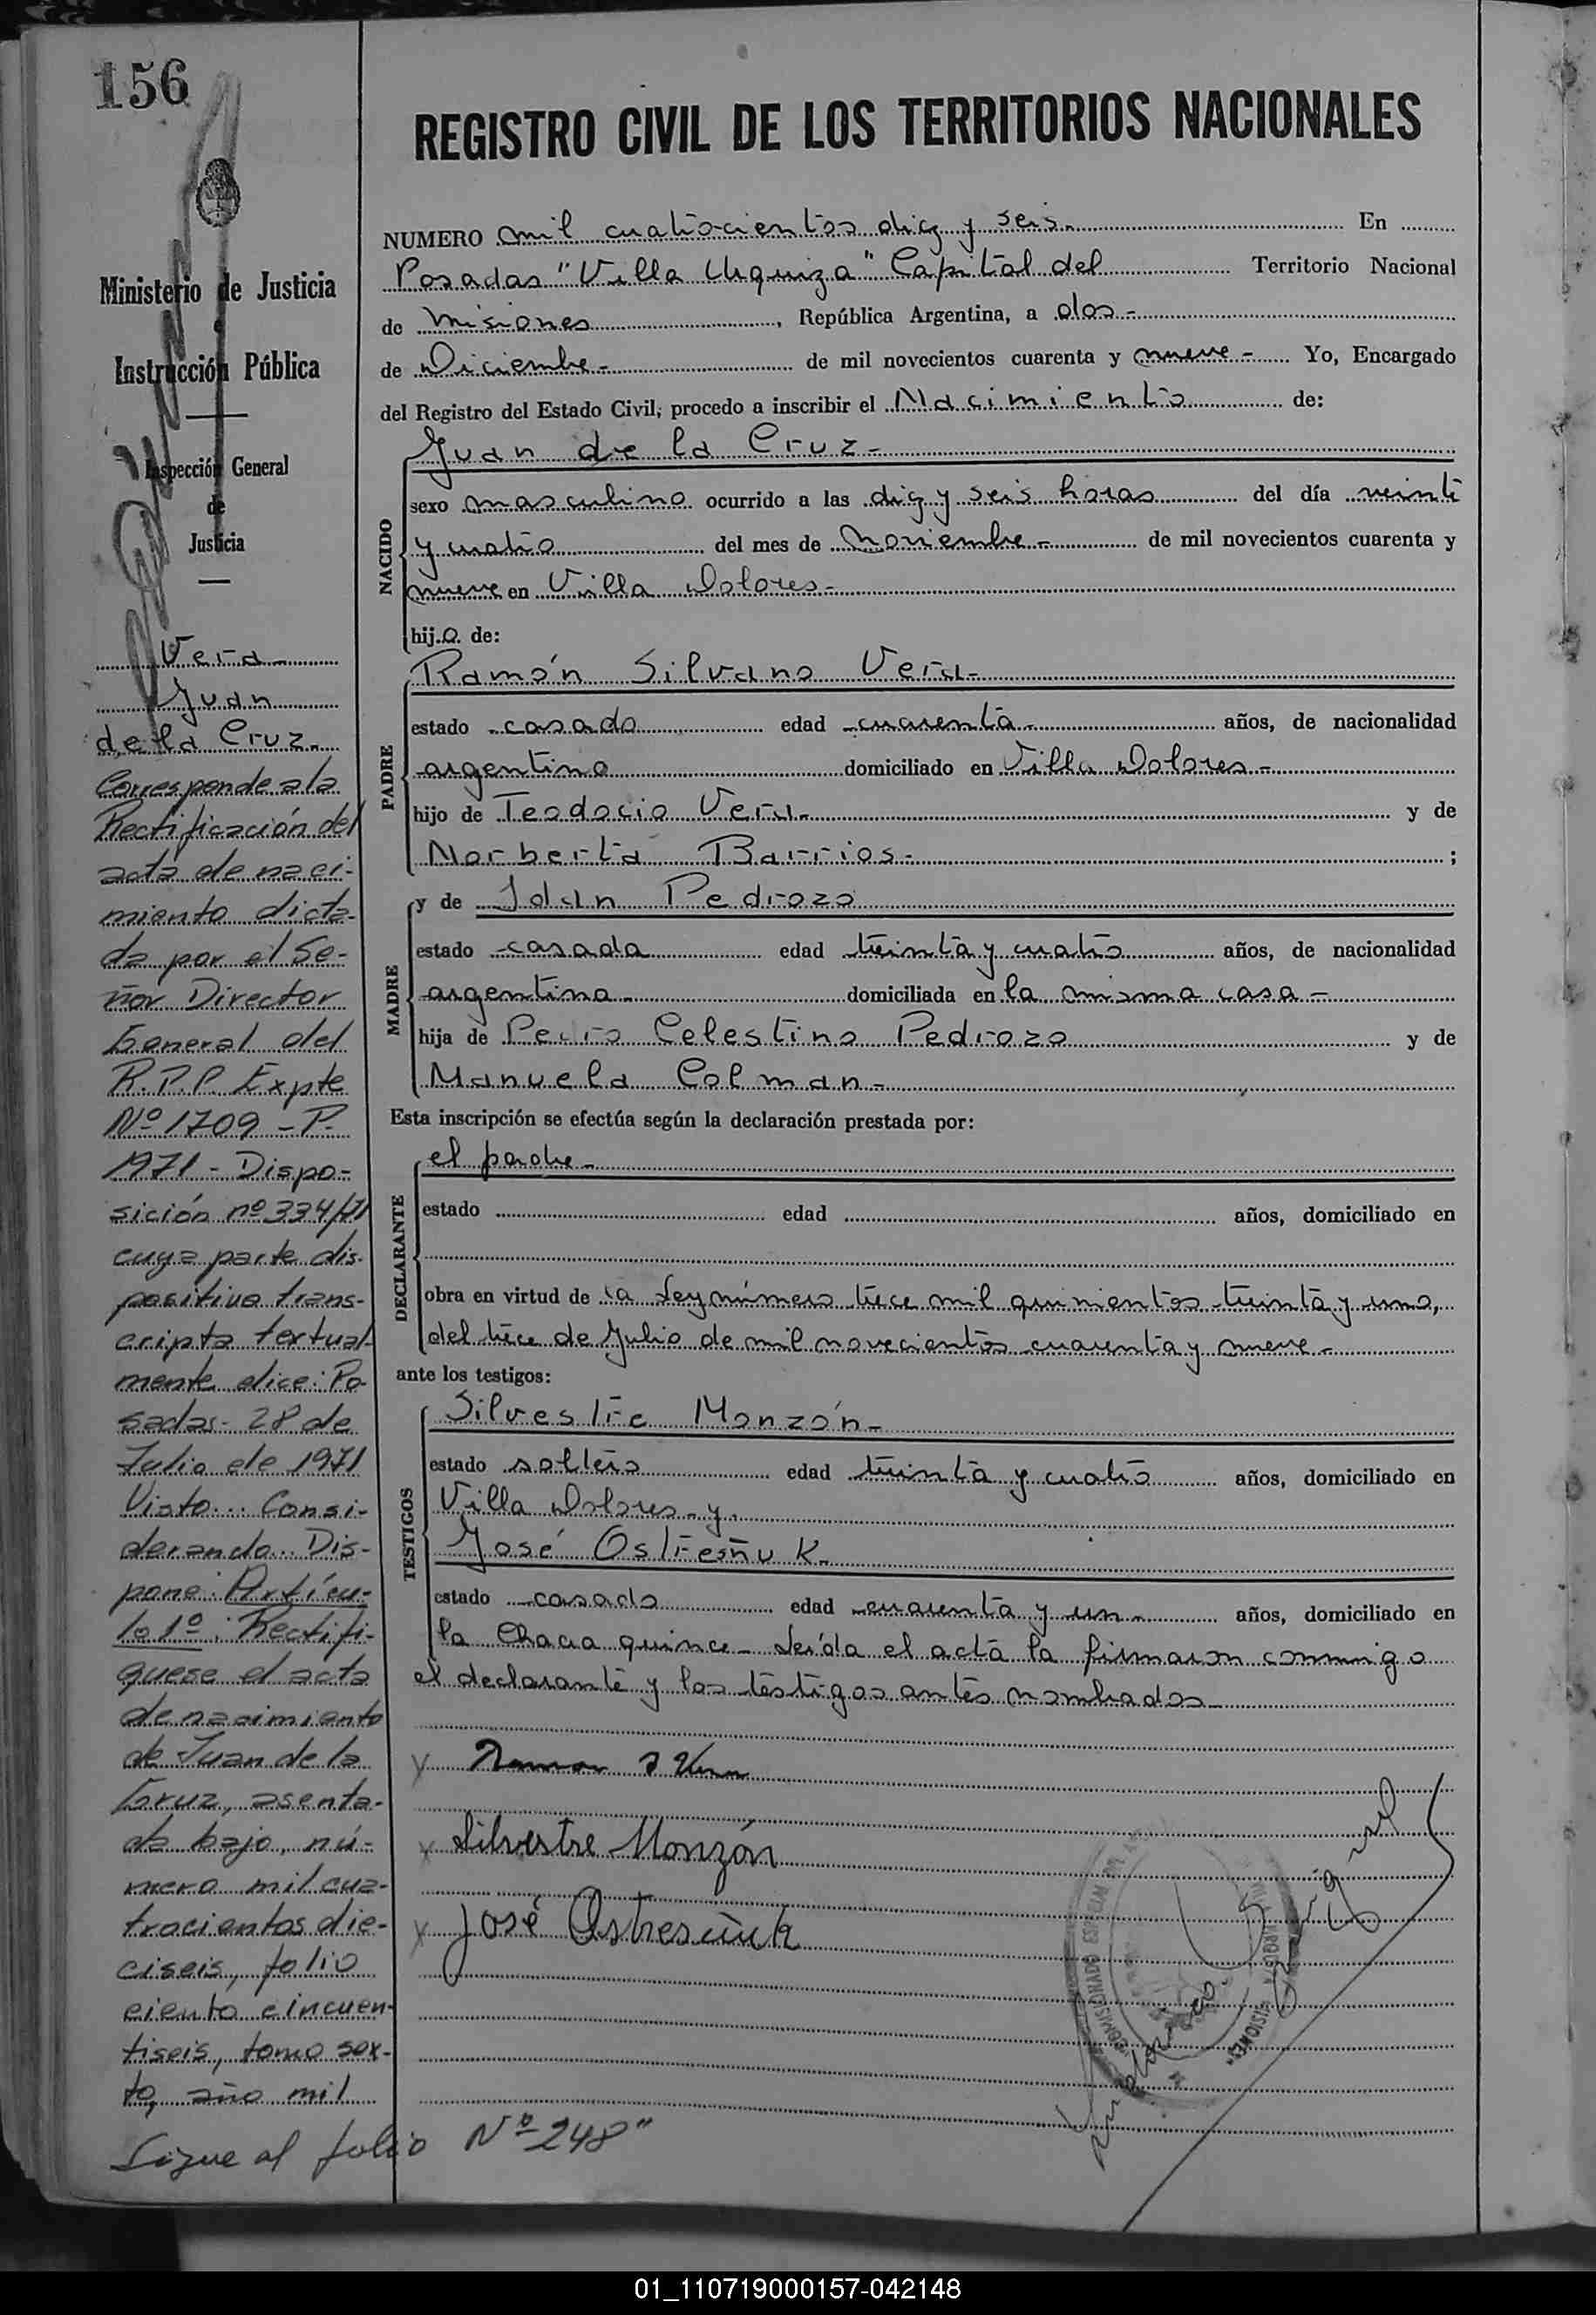 156
REGISTRO CIVIL DE LOS TERRITORIOS NACIONALES
Ministerio de Justicia
e
Instrucción Pública
Inspección General
de
Justicia
Vera
Juan
de la Cruz.
Corresponde a la
Rectificación del
acta de naci-
miento dicta-
da por el Se-
ñor Director
General del
R.P.P. Expte
Nº 1709 - P-
1971 - Dispo-
sición nº 334/71
cuya parte dis-
positiva trans-
cripta textual-
mente dice: Po-
sadas- 28 de
Julio de 1971
Visto... Consi-
derando... Dis-
pone: Artícu-
lo 1º: Rectifi-
quese el acta
de nacimiento
de Juan de la
Cruz, asenta-
da bajo nú-
mero mil cua-
trocientos die-
ciseis, folio
ciento cincuen-
tiseis, tomo sex-
to, año mil
Sigue al folio Nº 248"
NUMERO mil cuatrocientos diez y seis.- En
Posadas "Villa Urquiza" Capital del Territorio Nacional
de Misiones, República Argentina, a dos -
de Diciembre - de mil novecientos cuarenta y nueve - Yo, Encargado
del Registro del Estado Civil, procedo a inscribir el Nacimiento de:
NACIDO
Juan de la Cruz -
sexo masculino ocurrido a las diez y seis horas del día veinti
y cuatro del mes de Noviembre - de mil novecientos cuarenta y
nueve en Villa Dolores -
hij.o. de:
PADRE
Ramón Silvano Vera -
estado casado edad cuarenta - años, de nacionalidad
argentino domiciliado en Villa Dolores -
hijo de Teodocio Vera - y de
Norberta Barrios - ;
MADRE
y de Idan Pedrozo
estado casada edad treinta y cuatro años, de nacionalidad
argentina - domiciliada en la misma casa -
hija de Pedro Celestino Pedrozo y de
Manuela Colman -
Esta inscripción se efectúa según la declaración prestada por:
DECLARANTE
el padre -
estado edad años, domiciliado en
obra en virtud de la Ley número trece mil quinientos treinta y uno,
del trece de Julio de mil novecientos cuarenta y nueve -
ante los testigos:
TESTIGOS
Silvestre Monzón -
estado soltero edad treinta y cuatro años, domiciliado en
Villa Dolores - y
José Ostresñuk -
estado casado edad cuarenta y un - años, domiciliado en
la Chacra quince - Leída el acta la firmaron conmigo
el declarante y los testigos antes nombrados -
x Ramon S Vera
x Silvestre Monzón
x José Ostresñuk
COMISIONADO
MISIONES
01_110719000157-042148